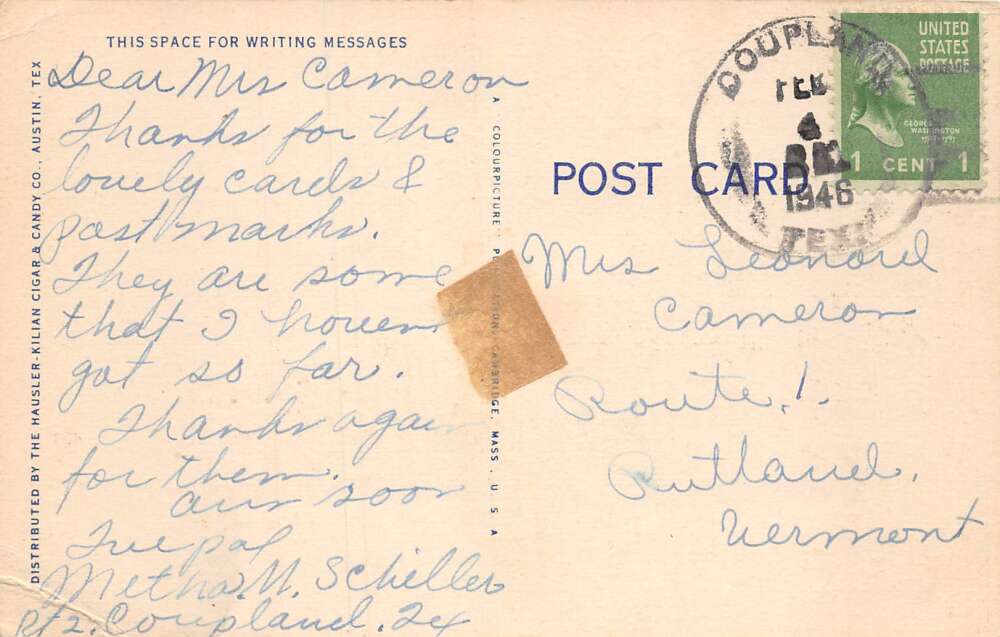 THIS SPACE FOR WRITING MESSAGES
Dear Mrs Cameron
Thanks for the
lovely cards &
post marks.
They are some
that I haven
got so far.
Thanks again
for them.
Ans soon
Metha M. Schiller
Rt 2. Coupland. Tex
DISTRIBUTED BY THE HAUSLER-KILIAN CIGAR & CANDY CO., AUSTIN, TEX
A COLOURPICTURE CAMBRIDGE, MASS., U S A
POST CARD
COUPLAND
FEB
4
1946
TEX
UNITED
STATES
POSTAGE
GEORGE
WASHINGTON
1 CENT 1
Mrs Leonard
Cameron
Route 1.
Rutland.
Vermont